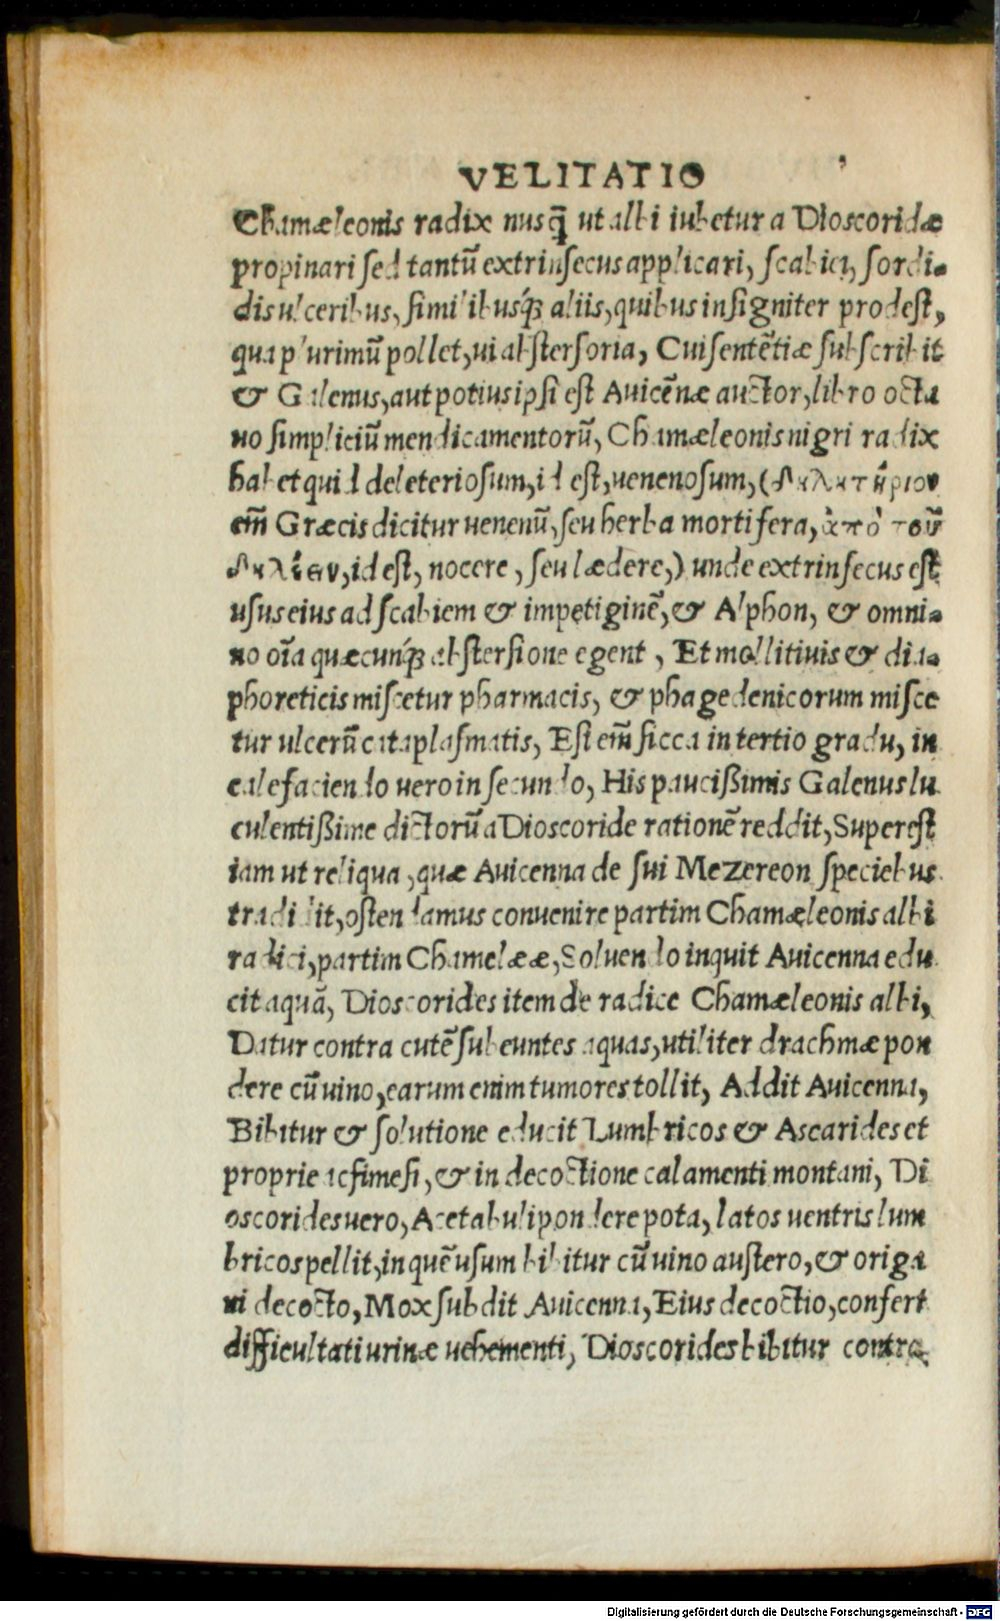 VELITATIO
Chamæleonis radix nusq̃ ut albi iubetur a Dioscoridæ
propinari sed tantũ extrinsecus applicari, scabiei, sordi-
dis ulceribus, similibusq́ꝫ aliis, quibus insigniter prodest,
qua plurimũ pollet, ui abstersoria, Cui sentẽtiæ subscribit
& Galenus, aut potius ipsi est Auicẽnæ auctor, libro octa
uo simpliciũ mendicamentorũ, Chamæleonis nigri radix
habet quid deleteriosum, id est, uenenosum, (δηλητήριον
em̃ Græcis dicitur uenenũ, seu herba mortifera, ἀπὸ τοῦ
δηλέειν, id est, nocere, seu lædere,) unde extrinsecus est
usus eius ad scabiem & impetiginẽ, & Alphon, & omni-
no oĩa quæcunq́ꝫ abstersione egent, Et mollitiuis & dia-
phoreticis miscetur pharmacis, & phagedenicorum misce
tur ulcerũ cataplasmatis, Est em̃ sicca in tertio gradu, in
calefaciendo uero in secundo, His paucißimis Galenus lu
culentißime dictorũ a Dioscoride rationẽ reddit, Superest
iam ut reliqua, quæ Auicenna de sui Mezereon speciebus
tradidit, ostendamus conuenire partim Chamæleonis albi
radici, partim Chamelææ, Soluendo inquit Auicenna edu
cit aquã, Dioscorides item de radice Chamæleonis albi,
Datur contra cutẽ subeuntes aquas, utiliter drachmæ pon
dere cũ uino, earum enim tumores tollit, Addit Auicenna,
Bibitur & solutione educit Lumbricos & Ascarides et
proprie acsimesi, & in decoctione calamenti montani, Di
oscorides uero, Acetabuli pondere pota, latos uentris lum
bricos pellit, in quẽ usum bibitur cũ uino austero, & origa
ni decocto, Mox subdit Auicenna, Eius decoctio, confert
difficultati urinæ uehementi, Dioscorides bibitur contra
Digitalisierung gefördert durch die Deutsche Forschungsgemeinschaft - DFG